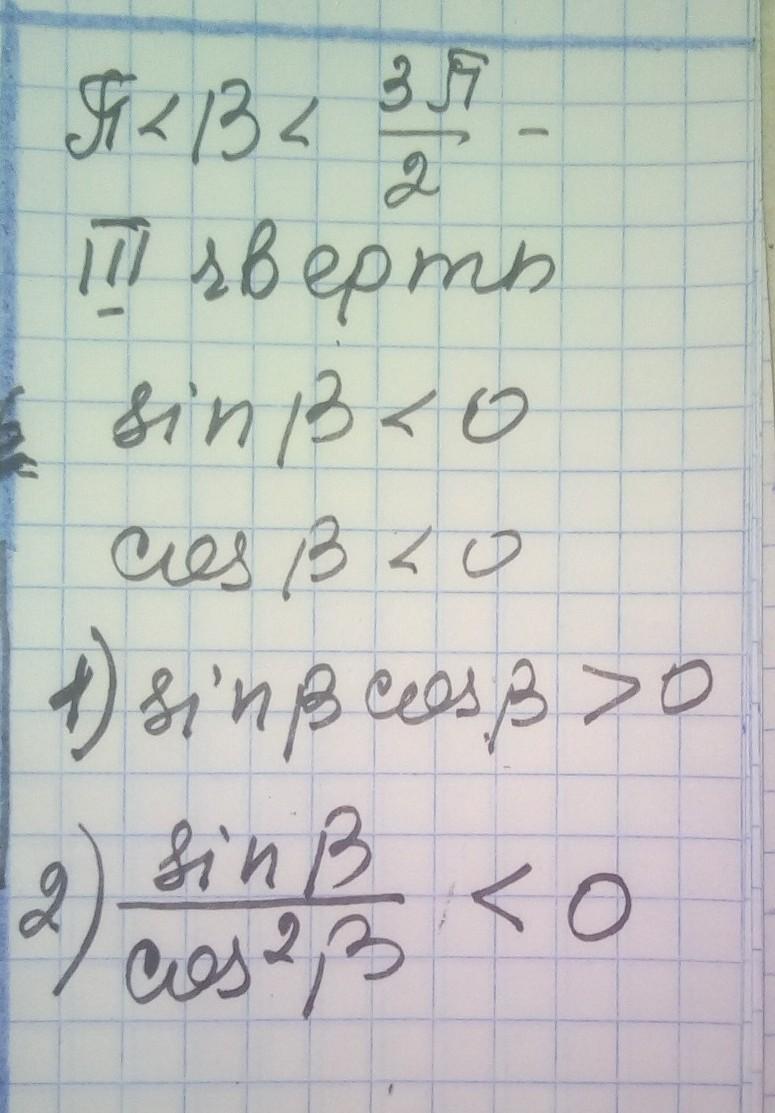 π < β < 3π/2 -
III чверть
sin β < 0
cos β < 0
1) sin β cos β > 0
2) sin β / cos² β < 0